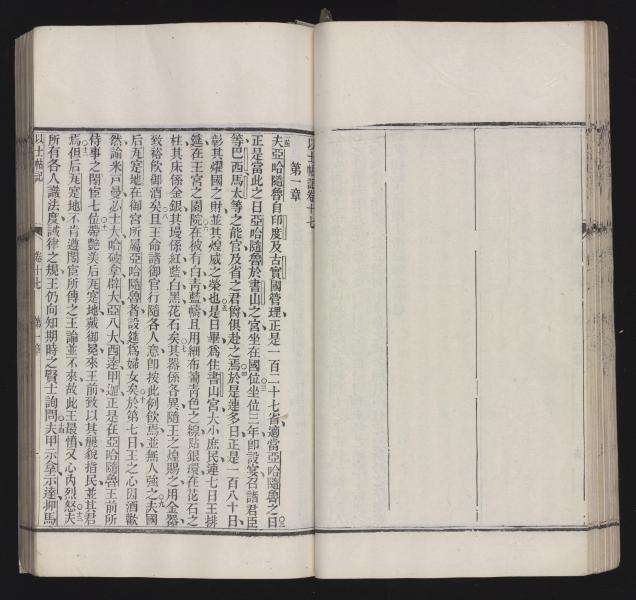 以士帖記卷十七
第一章
夫亞哈隨魯自印度及古實國管理正是一百二十七省適當亞哈隨魯之日
正是當此之日亞哈隨魯於書山之宮坐在國位坐位三年即設宴召諸君臣
等巴西馬太等之能官及省之君爵俱赴之焉於是連多日正是一百八十日
彰其耀國之財並其煌威之榮也是日畢為住書山宮大小庶民連七日王排
筵在王宮之園院在彼有白青藍幬且用細布葡青色之線貼銀環在花石之
柱其床係金銀其墁係紅藍白黑花石矣其器係各異隨王之煌賜之用金器
致裕飲御酒矣且王命諸御官行隨各人意卽按此例飲焉並無人強之夫國
后瓦寔地在御宮所屬亞哈隨魯者設筵為婦女矣於第七日王之心因酒歡
然諭米戶曼必士大哈破拿辟大亞八大西達甲迦正是在亞哈隨魯王前所
侍事之閹宦七位帶艷美后瓦寔地戴御冕來王前致以其麗貌指民並其君
焉但后瓦寔地不肯遵閹宦所傳之王諭並不來故此王最憤又心內烈怒夫
所有各人識法度誡律之規王仍向知期時之賢士詢問夫甲示拿示達押馬
以士帖記
卷十七
第一章